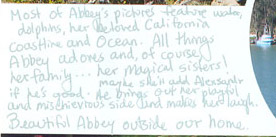 Most of Abbey's pictures feature water,
dolphins, her beloved California
coastline and Ocean. All things
Abbey adores and, of course,
her family... her magical sisters!
maybe she'll add Alexsandr
if he's good. He brings out her playful
and mischievous side and makes her laugh.
Beautiful Abbey outside our home.